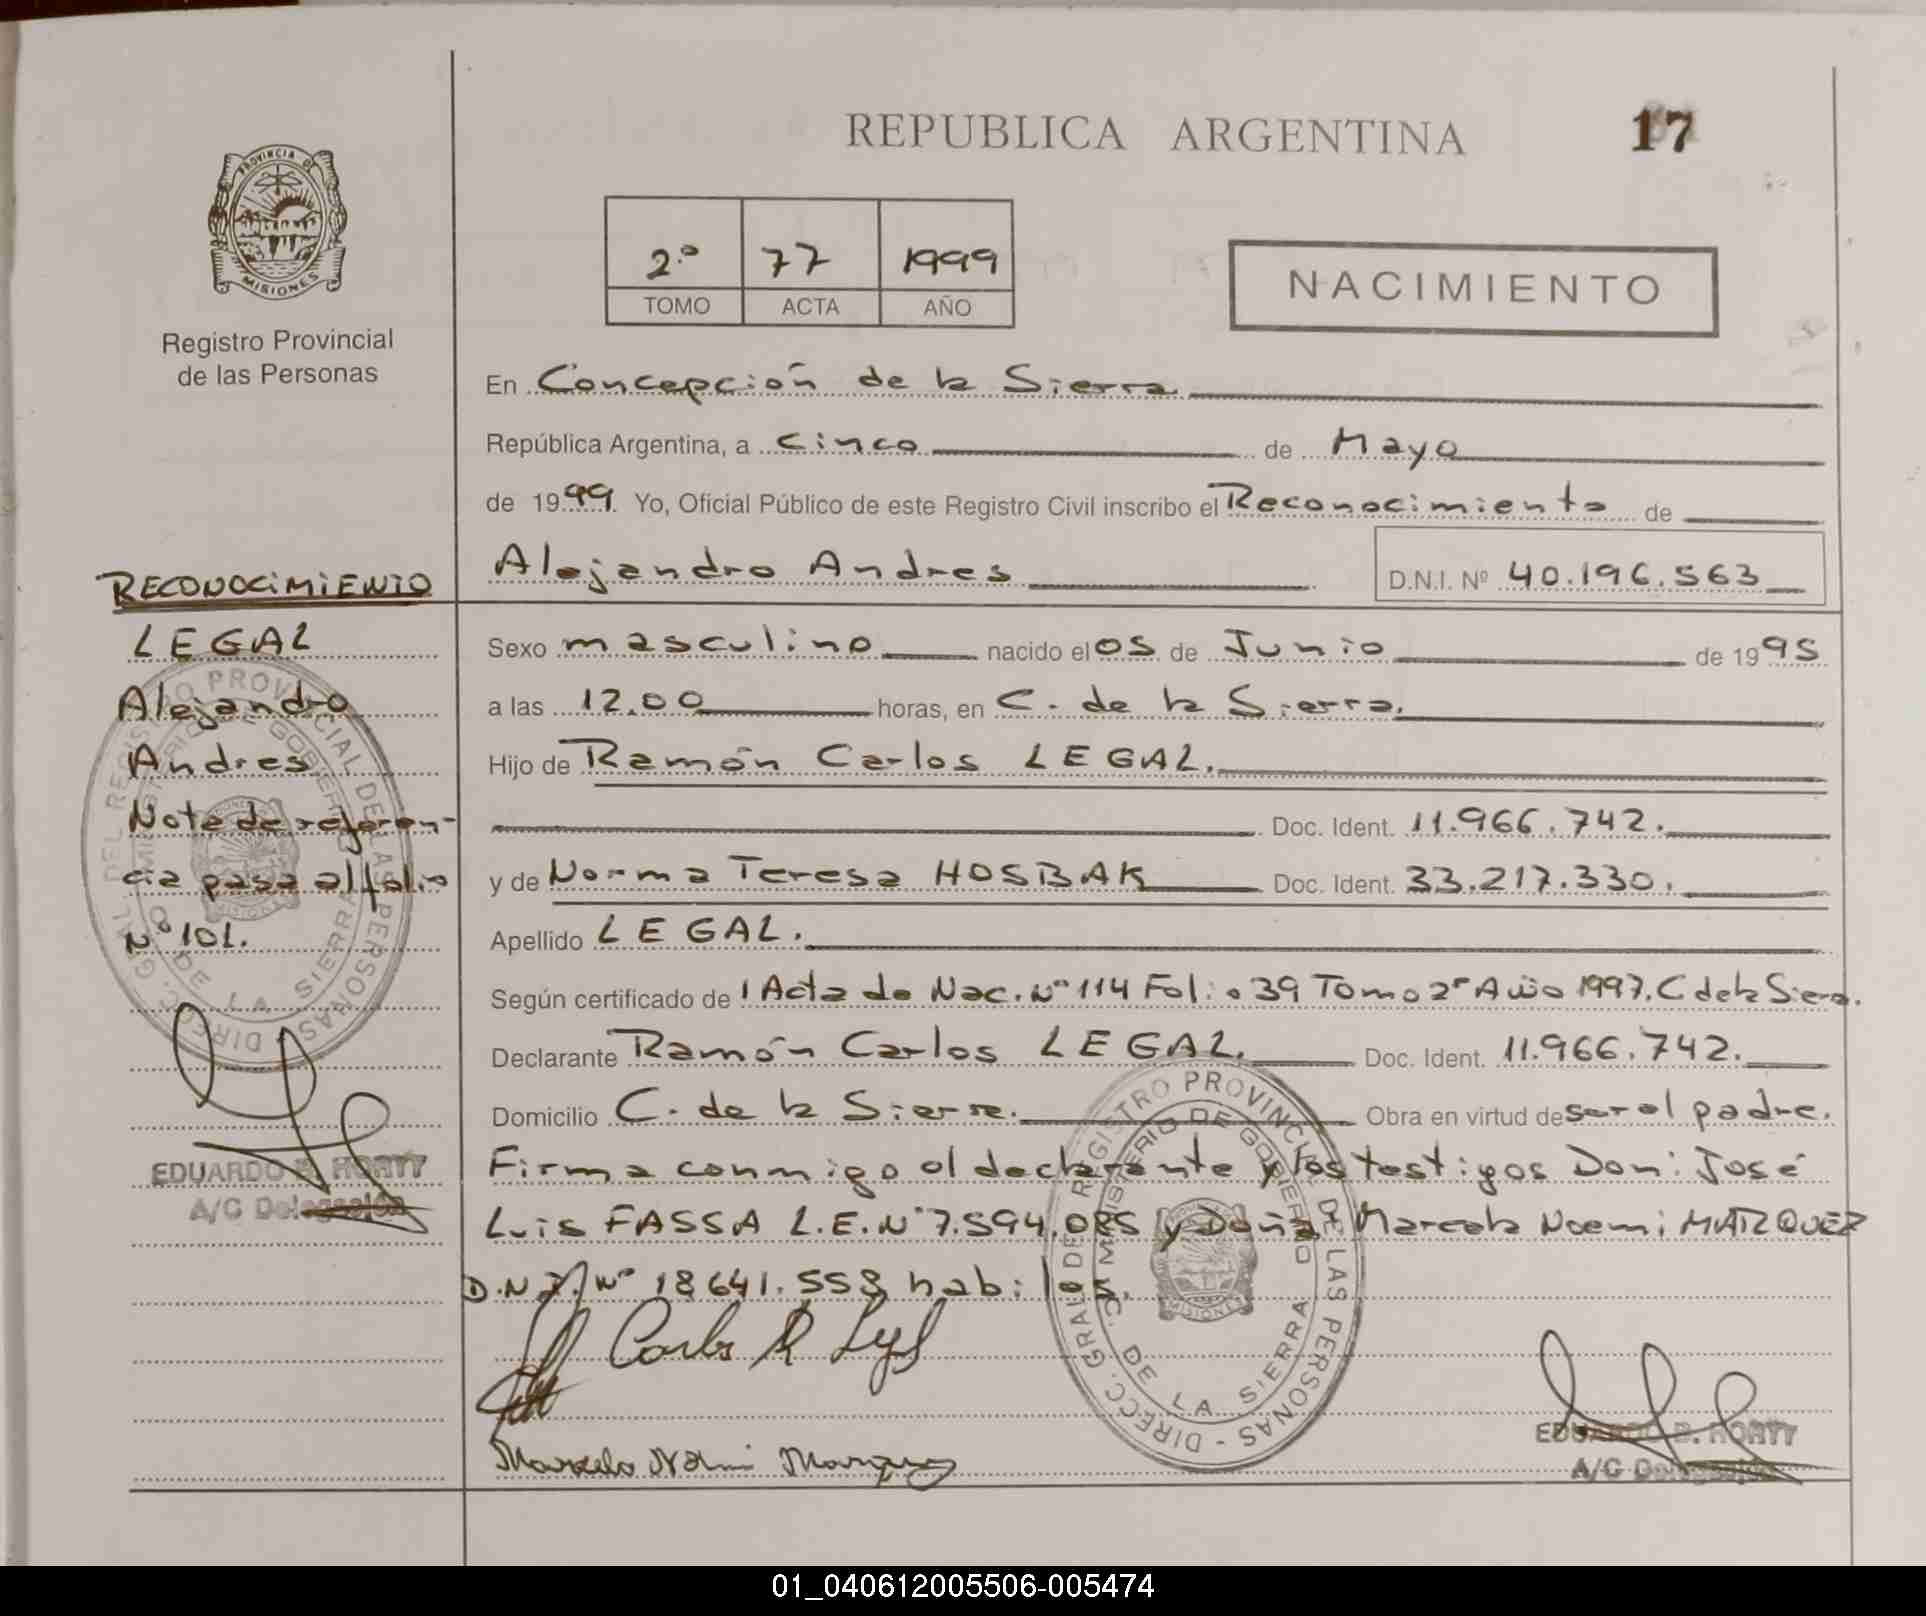 REPUBLICA ARGENTINA
17
PROVINCIA DE
MISIONES
Registro Provincial
de las Personas
2º 77 1999
TOMO ACTA AÑO
NACIMIENTO
En Concepción de la Sierra
República Argentina, a Cinco de Mayo
de 1999. Yo, Oficial Público de este Registro Civil inscribo el Reconocimiento de
Alejandro Andres D.N.I. Nº 40.196.563
Sexo masculino nacido el 05 de Junio de 1995
a las 12.00 horas, en C. de la Sierra.
Hijo de Ramón Carlos LEGAL.
Doc. Ident. 11.966.742.
y de Norma Teresa HOSBAK Doc. Ident. 33.217.330.
Apellido LEGAL.
Según certificado de 1 Acta de Nac. Nº 114 Folio 39 Tomo 2º Año 1997. C de la Sierra.
Declarante Ramón Carlos LEGAL. Doc. Ident. 11.966.742.
Domicilio C. de la Sierra. Obra en virtud de ser el padre.
Firma conmigo el declarante y los testigos Don: José
Luis FASSA L.E. Nº 7.594.085 y Doña Marcela Noemi MARQUEZ
D.N.I. Nº 18641.558 habiles.
Marcela Noemi Marquez
EDUARDO B. HORTT
A/C Delegación
DIRECC. GRAL. DEL REGISTRO PROVINCIAL DE LAS PERSONAS
MINISTERIO DE GOBIERNO
C. DE LA SIERRA
MISIONES
RECONOCIMIENTO
LEGAL
Alejandro
Andres
Nota de referen-
cia pasa al folio
Nº 101.
DIRECC. GRAL. DEL REGISTRO PROVINCIAL DE LAS PERSONAS
MINISTERIO DE GOBIERNO
C. DE LA SIERRA
MISIONES
EDUARDO B. HORTT
A/C Delegación
01_040612005506-005474